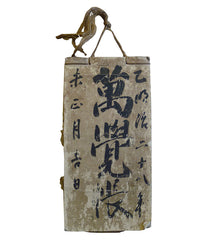 乙明治二十八年
萬覺帳
未正月吉日